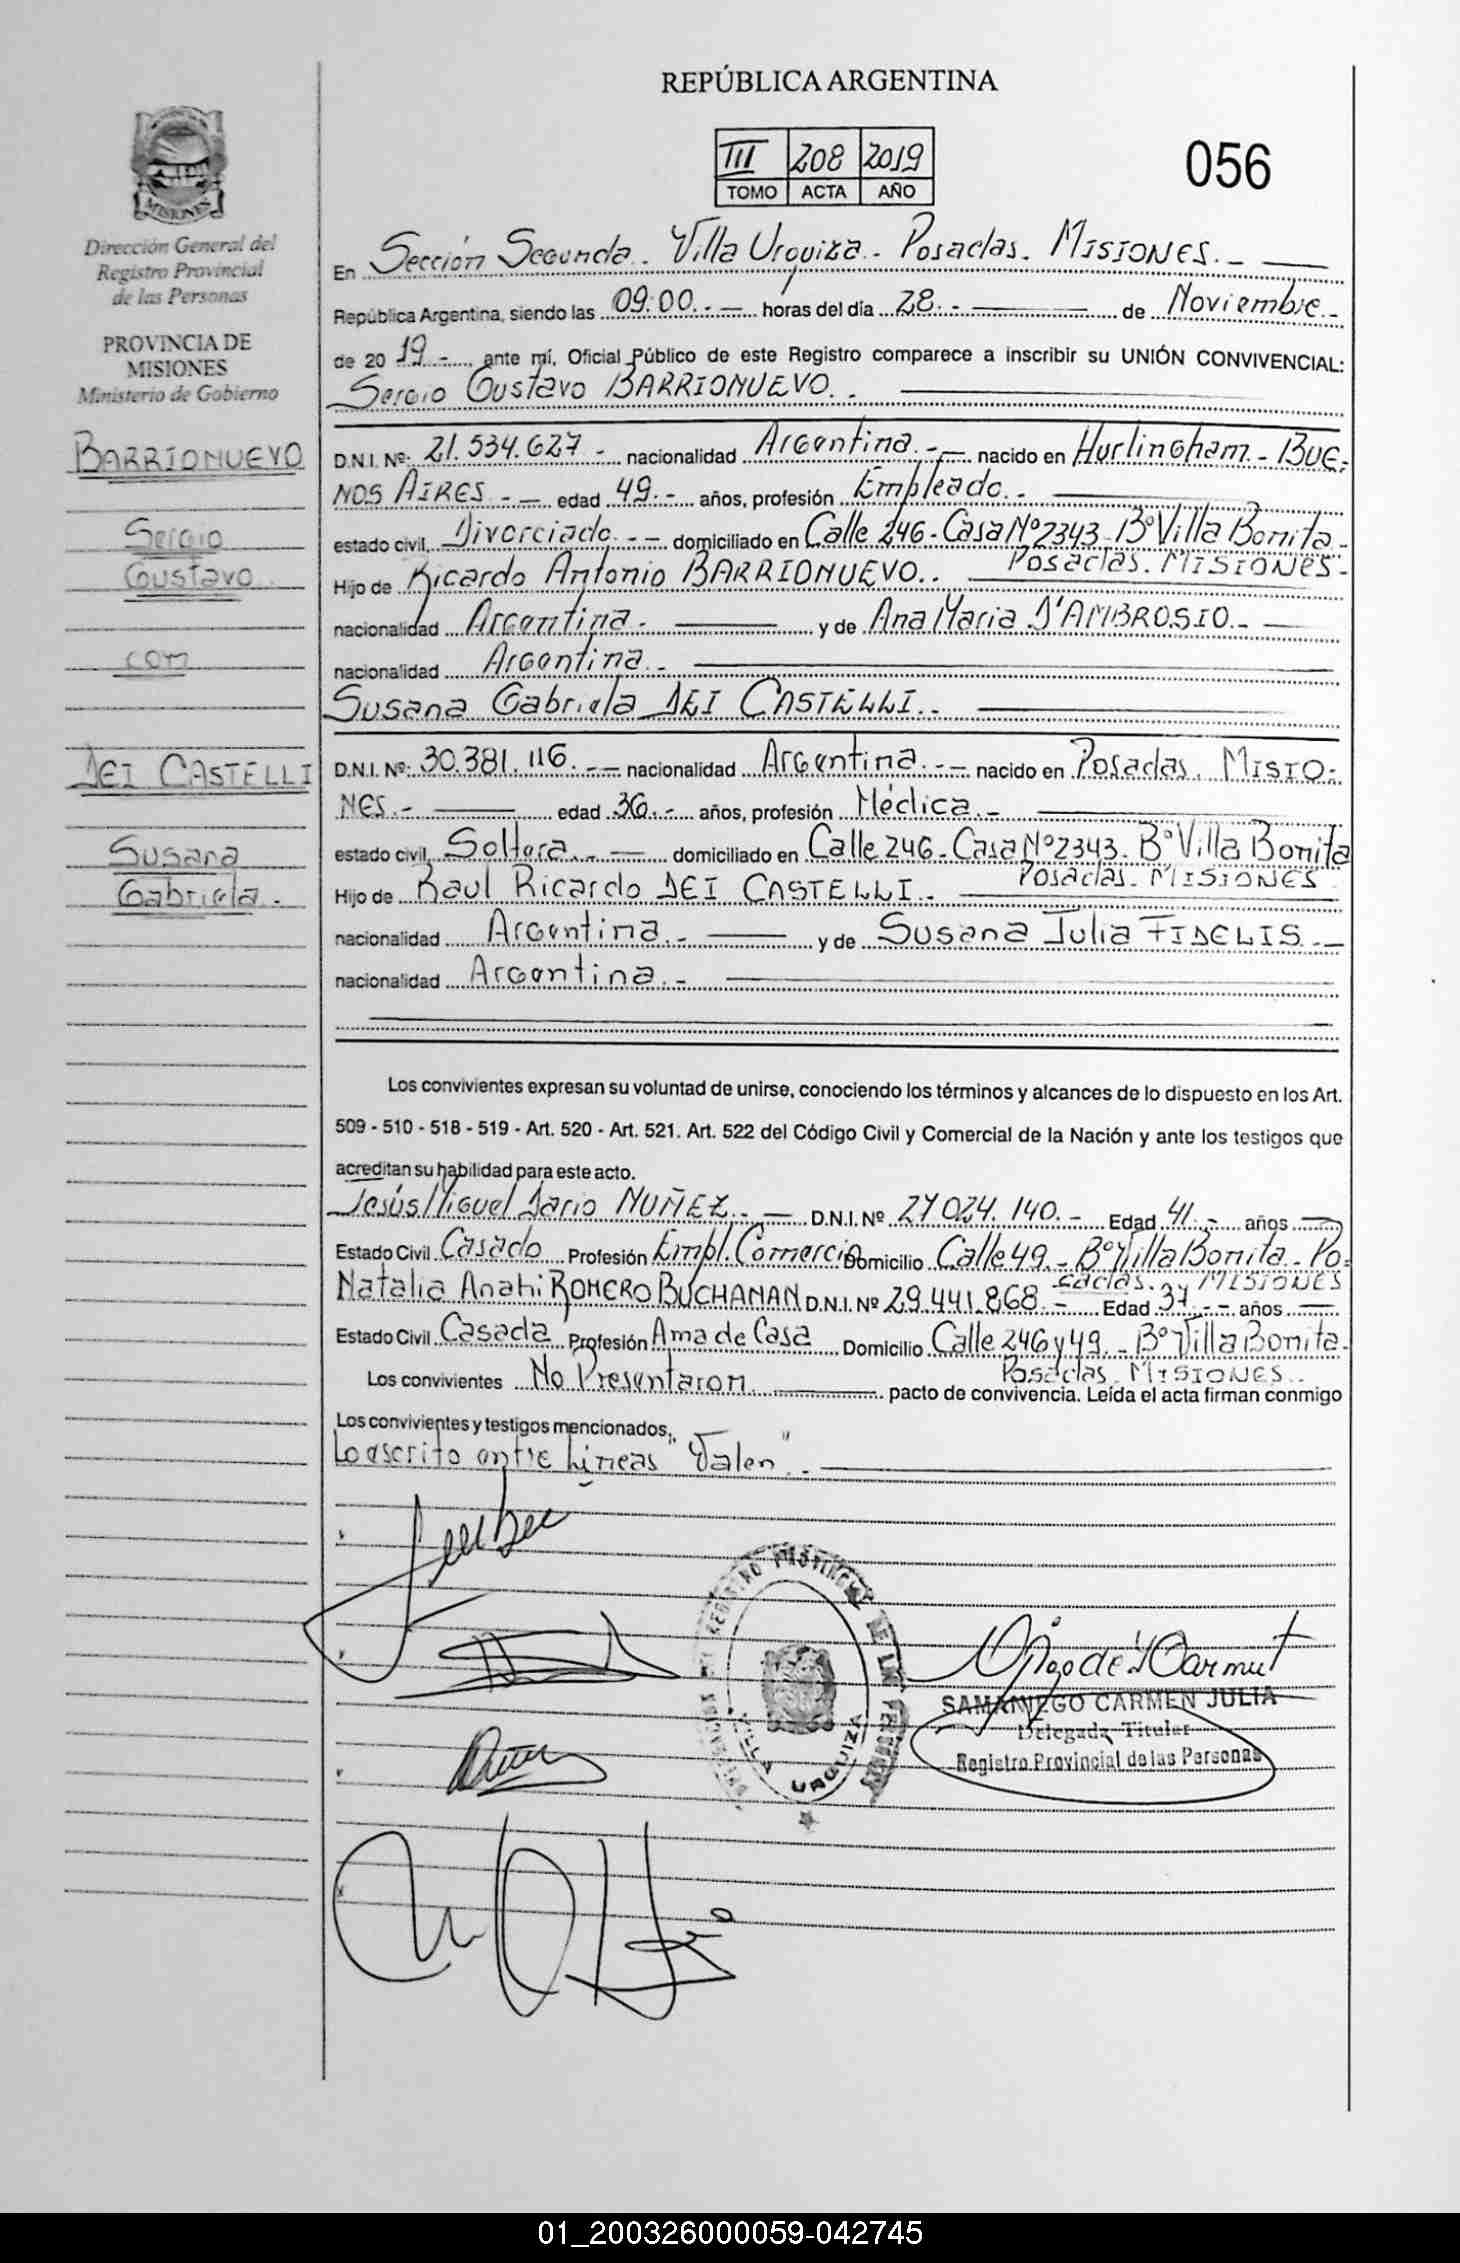 REPÚBLICA ARGENTINA
III 208 2019
TOMO ACTA AÑO
056
MISIONES
Dirección General del
Registro Provincial
de las Personas
PROVINCIA DE
MISIONES
Ministerio de Gobierno
BARRIONUEVO
Sergio
Gustavo
con
DEI CASTELLI
Susana
Gabriela.-
En Sección Segunda. Villa Urquiza. Posadas. MISIONES.-
República Argentina, siendo las 09:00.- horas del día 28.- de Noviembre.-
de 20 19.- ante mí, Oficial Público de este Registro comparece a inscribir su UNIÓN CONVIVENCIAL:
Sergio Gustavo BARRIONUEVO.-
D.N.I. Nº: 21.534.627.- nacionalidad Argentina.- nacido en Hurlingham.- BUE-
NOS AIRES.- edad 49.- años, profesión Empleado.-
estado civil, Divorciado.- domiciliado en Calle 246-Casa Nº2343-Bº Villa Bonita-
Posadas. MISIONES-
Hijo de Ricardo Antonio BARRIONUEVO..
nacionalidad Argentina.- y de Ana Maria D'AMBROSIO.-
nacionalidad Argentina.-
Susana Gabriela DEI CASTELLI..
D.N.I. Nº: 30.381.116.- nacionalidad Argentina.- nacido en Posadas, MISIO-
NES.- edad 36.- años, profesión Médica.-
estado civil, Soltera.- domiciliado en Calle 246-Casa Nº2343. Bº Villa Bonita
Posadas. MISIONES
Hijo de Raul Ricardo DEI CASTELLI.-
nacionalidad Argentina.- y de Susana Julia FIDELIS.-
nacionalidad Argentina.-
Los convivientes expresan su voluntad de unirse, conociendo los términos y alcances de lo dispuesto en los Art.
509 - 510 - 518 - 519 - Art. 520 - Art. 521. Art. 522 del Código Civil y Comercial de la Nación y ante los testigos que
acreditan su habilidad para este acto.
Jesús Miguel Dario NUÑEZ.- D.N.I. Nº 27.024.140.- Edad 41.- años
Estado Civil Casado Profesión Empl. Comercio Domicilio Calle 49.- Bº Villa Bonita. Po-
sadas. MISIONES
Natalia Anahi ROMERO BUCHANAN D.N.I. Nº 29.441.868.- Edad 37.- años
Estado Civil Casada Profesión Ama de Casa Domicilio Calle 246 y 49.- Bº Villa Bonita-
Posadas. MISIONES..
Los convivientes No Presentaron pacto de convivencia. Leída el acta firman conmigo
Los convivientes y testigos mencionados,
Lo escrito entre Líneas "Valen".-
VILLA URQUIZA
SAMANIEGO CARMEN JULIA
Delegada Titular
Registro Provincial de las Personas
01_200326000059-042745